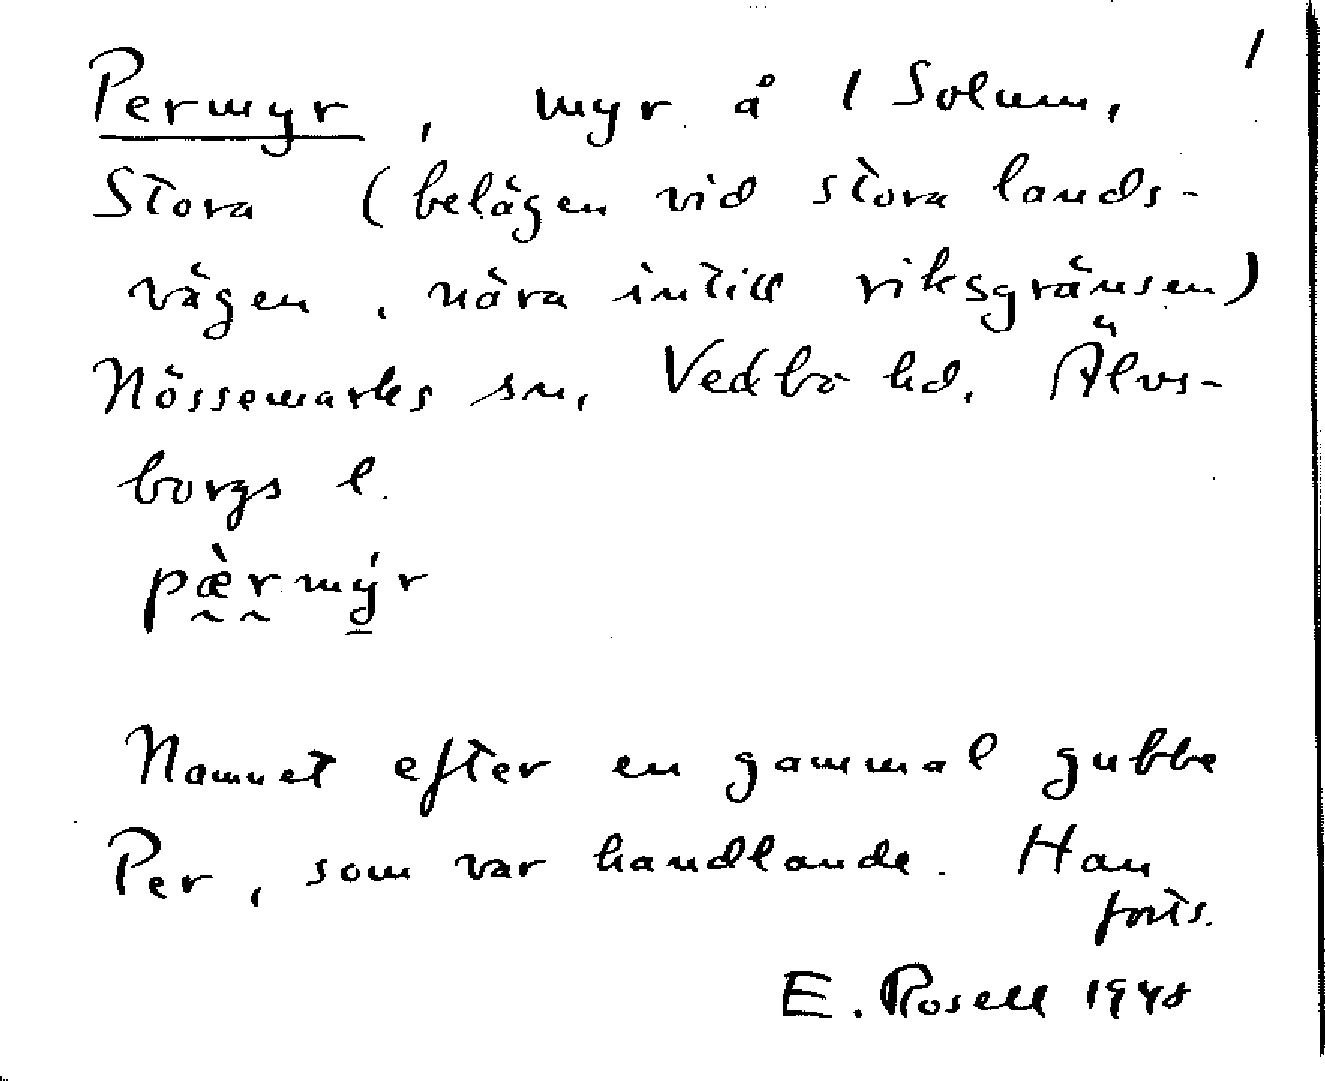 1
Permyr, myr å 1 Solum,
Stora (belägen vid stora lands-
vägen, nära intill riksgränsen)
Nössemarks sn, Vedbo hd. Älvs-
borgs l.
pæ̀rmýr
Namnet efter en gammal gubbe
Per, som var handlande. Han
forts.
E. Rosell 1948